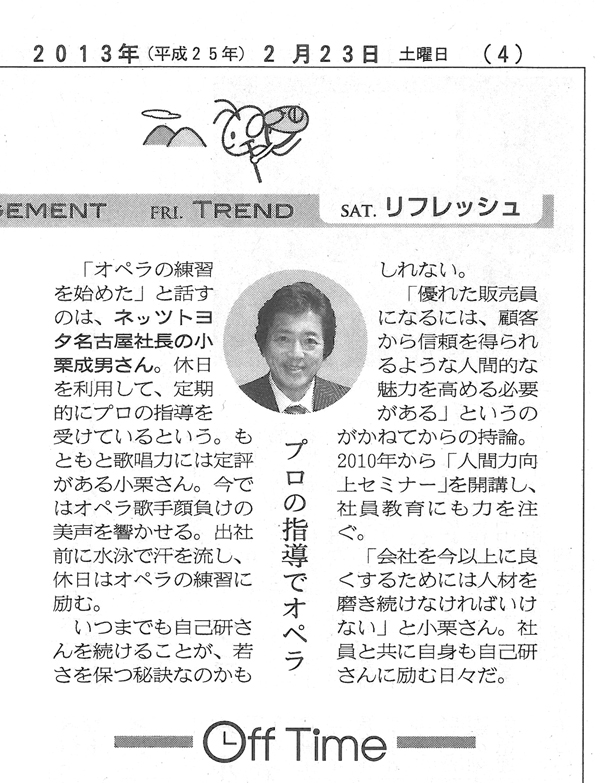 2013年(平成25年) 2月23日 土曜日 (4)
GEMENT FRI. TREND SAT. リフレッシュ
「オペラの練習
を始めた」と話す
のは、ネッツトヨ
タ名古屋社長の小
栗成男さん。休日
を利用して、定期
的にプロの指導を
受けているという。も
ともと歌唱力には定評
がある小栗さん。今で
はオペラ歌手顔負けの
美声を響かせる。出社
前に水泳で汗を流し、
休日はオペラの練習に
励む。
いつまでも自己研さ
んを続けることが、若
さを保つ秘訣なのかも
プロの指導でオペラ
しれない。
「優れた販売員
になるには、顧客
から信頼を得られ
るような人間的な
魅力を高める必要
がある」というの
がかねてからの持論。
2010年から「人間力向
上セミナー」を開講し、
社員教育にも力を注
ぐ。
「会社を今以上に良
くするためには人材を
磨き続けなければいけ
ない」と小栗さん。社
員と共に自身も自己研
さんに励む日々だ。
Off Time